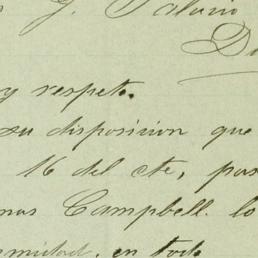 J. Palacio
D
y respeto.
su disposicion que
16 del cte, pas
nas Campbell. lo
midad, en todo